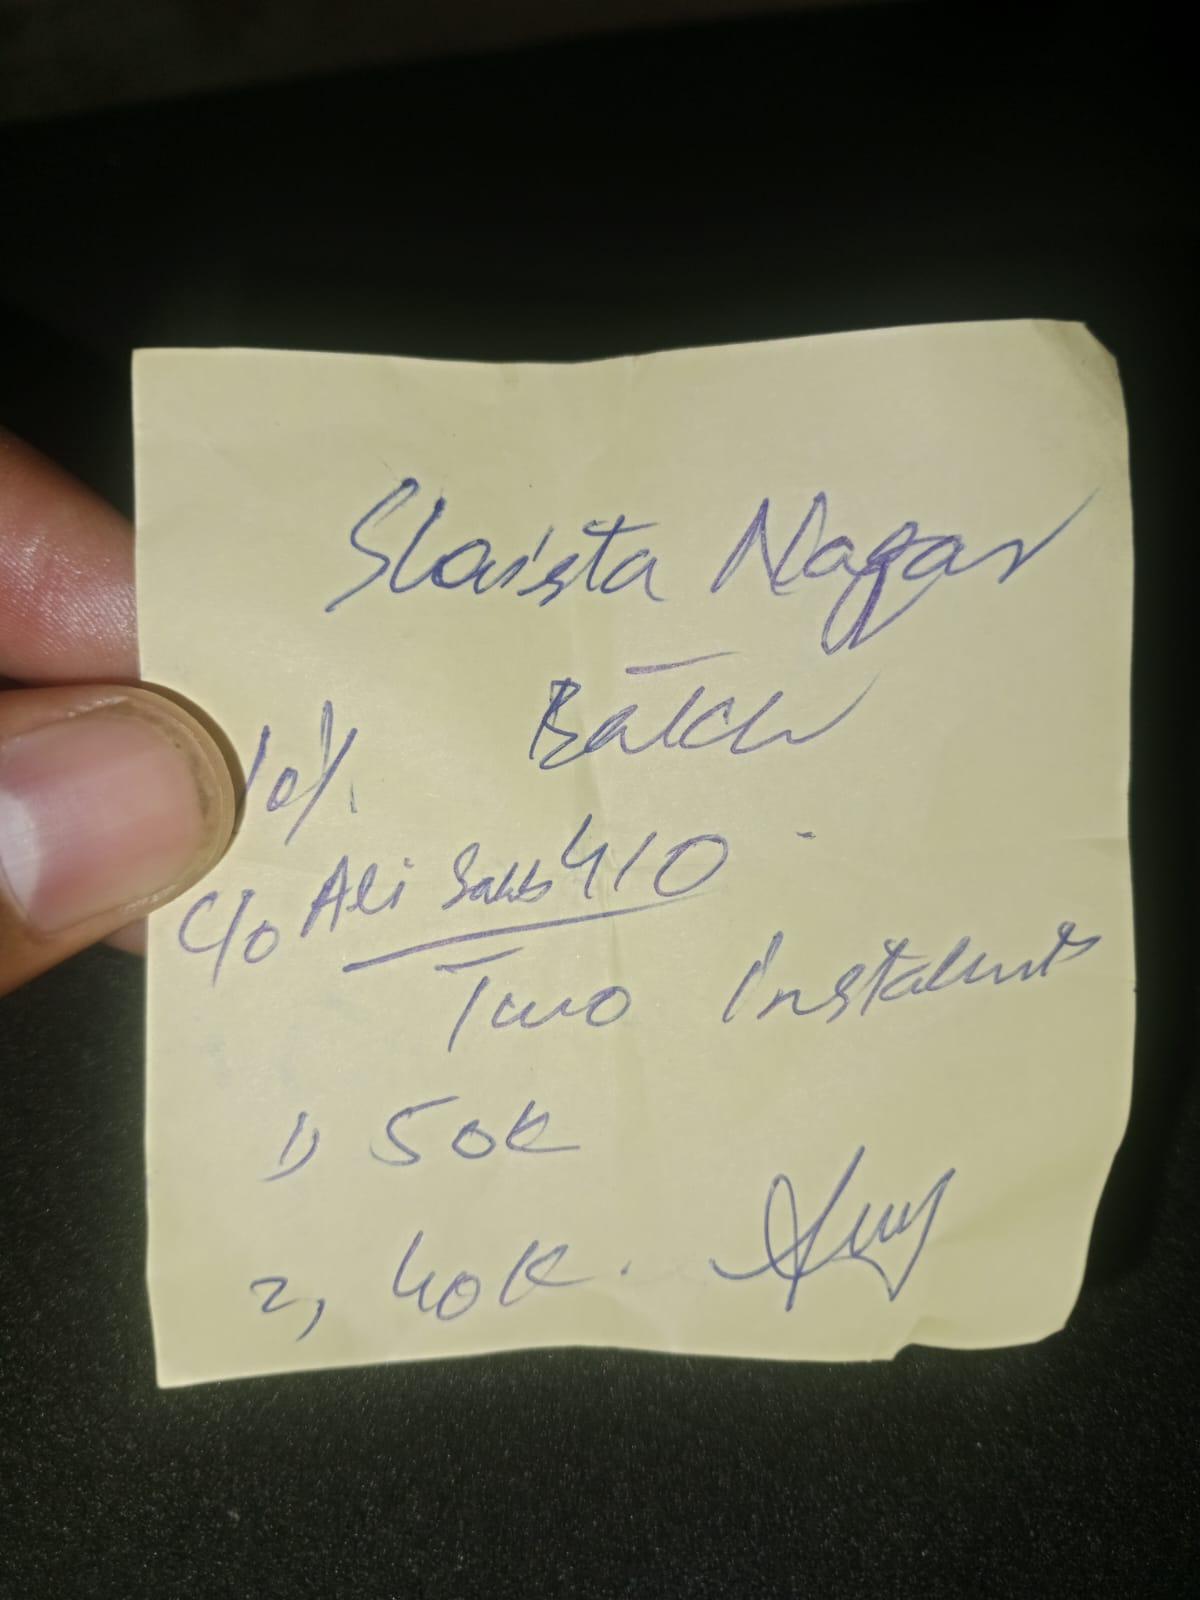 Shaista Nagar
Batch
10%
C/o Ali Sahb 410
Two Instalments
1) 50K
2, 40K.